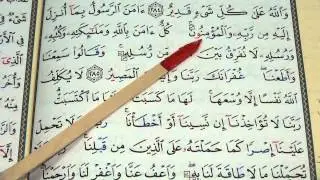 وَاللَّهُ عَلَىٰ كُلِّ شَيْءٍ قَدِيرٌ ﴿٢٨٤﴾ ءَامَنَ الرَّسُولُ بِمَا أُنزِلَ
إِلَيْهِ مِن رَّبِّهِ وَالْمُؤْمِنُونَ كُلٌّ ءَامَنَ بِاللَّهِ وَمَلَٰٓئِكَتِهِ وَكُتُبِهِ
وَرُسُلِهِ لَا نُفَرِّقُ بَيْنَ مِّن رُّسُلِهِ وَقَالُوا سَمِعْنَا
وَأَطَعْنَا غُفْرَانَكَ رَبَّنَا وَإِلَيْكَ الْمَصِيرُ ﴿٢٨٥﴾ لَا يُكَلِّفُ
اللَّهُ نَفْسًا إِلَّا وُسْعَهَا لَهَا مَا كَسَبَتْ وَعَلَيْهَا مَا اكْتَسَبَتْ
رَبَّنَا لَا تُؤَاخِذْنَا إِن نَّسِينَا أَوْ أَخْطَأْنَا رَبَّنَا وَلَا تَحْمِلْ
عَلَيْنَا إِصْرًا كَمَا حَمَلْتَهُ عَلَى الَّذِينَ مِن قَبْلِنَا
تُحَمِّلْنَا مَا لَا طَاقَةَ لَنَا بِهِ وَاعْفُ عَنَّا وَاغْفِرْ لَنَا